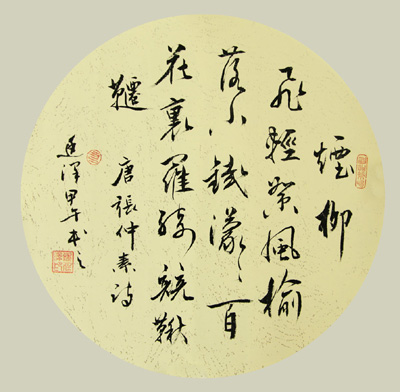 煙柳
飛輕絮風榆
落小錢濛々百
花裏羅綺競鞦
韆
唐張仲素詩
澤甲午